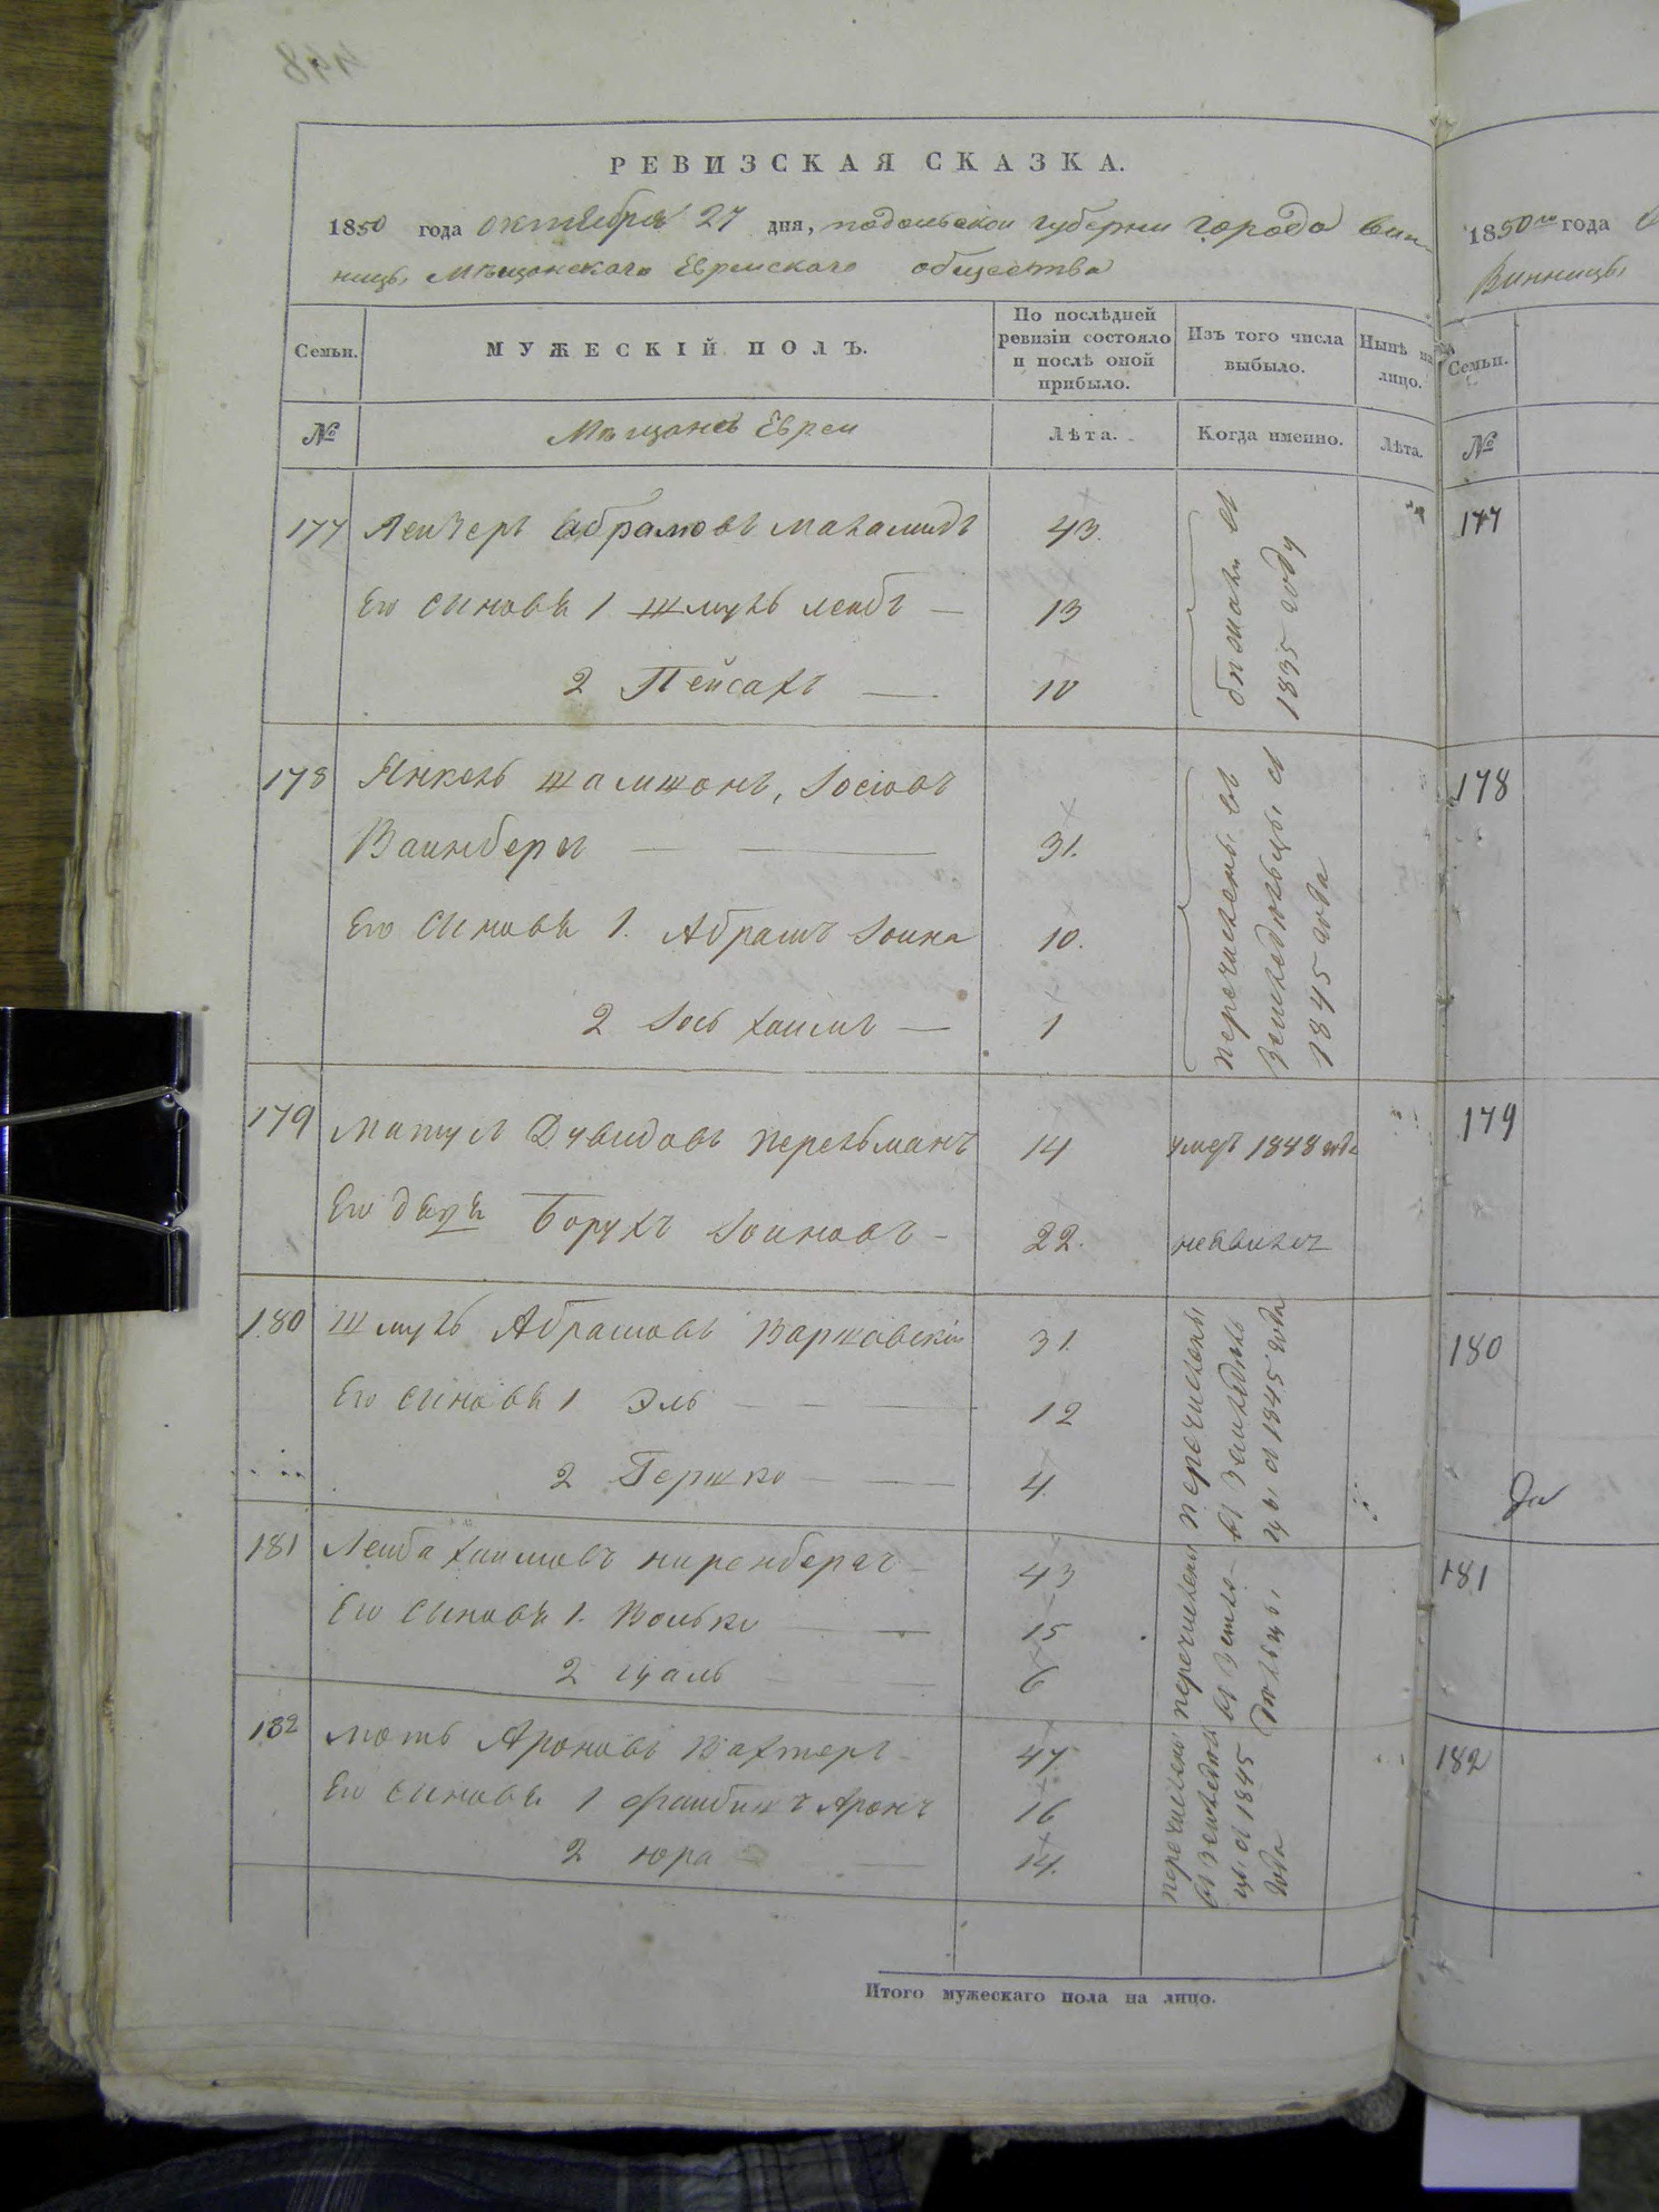 РЕВИЗСКАЯ СКАЗКА.
1850 года октября 27 дня, подольской губернии города Вин-
ницы Мѣщанскаго Еврейскаго общества
Семьи. МУЖЕСКІЙ ПОЛЪ. По послѣдней ревизіи состояло и послѣ оной прибыло. Изъ того числа выбыло. Нынѣ на лицо.
№ Мѣщане Евреи Лѣта. Когда именно. Лѣта.
177 Лейзеръ Абрамовъ Маламидъ 43. бѣжали въ 1835 году
Его синовья 1 Шмуль Лейбъ — 13
2 Пейсахъ — 10
178 Янкель Шамшонъ, Іосіовъ
Вайнбергъ — 31. перечислены въ земледѣльцы съ 1845 года
Его синовья 1. Абрамъ Іойна 10.
2 Іось Хаимъ — 1
179 Матусъ Дувидовъ Перельманъ 14 умеръ 1848 года
Его дядя Борухъ Іойновъ - 22. неявился
180 Шмуль Абрамовъ Варшавскій 31. перечислены въ земледѣль цы съ 1845 года
Его синовья 1 Эль — 12
2 Гершко — 4
181 Лейба Хаимовъ Ниренбергъ 43 перечислены въ земле- дѣльцы
Его синовья 1. Волько — 15
2 Цаль — 6
182 Моть Ароновъ Вахтеръ 47. перечислены въ земледѣль цы съ 1845 года
Его синовья 1 Файбишъ Аронъ 16
2 Юра — 14.
Итого мужескаго пола на лицо.
1850го года
Винницы
Семьи.
№
177
178
179
180
181
182